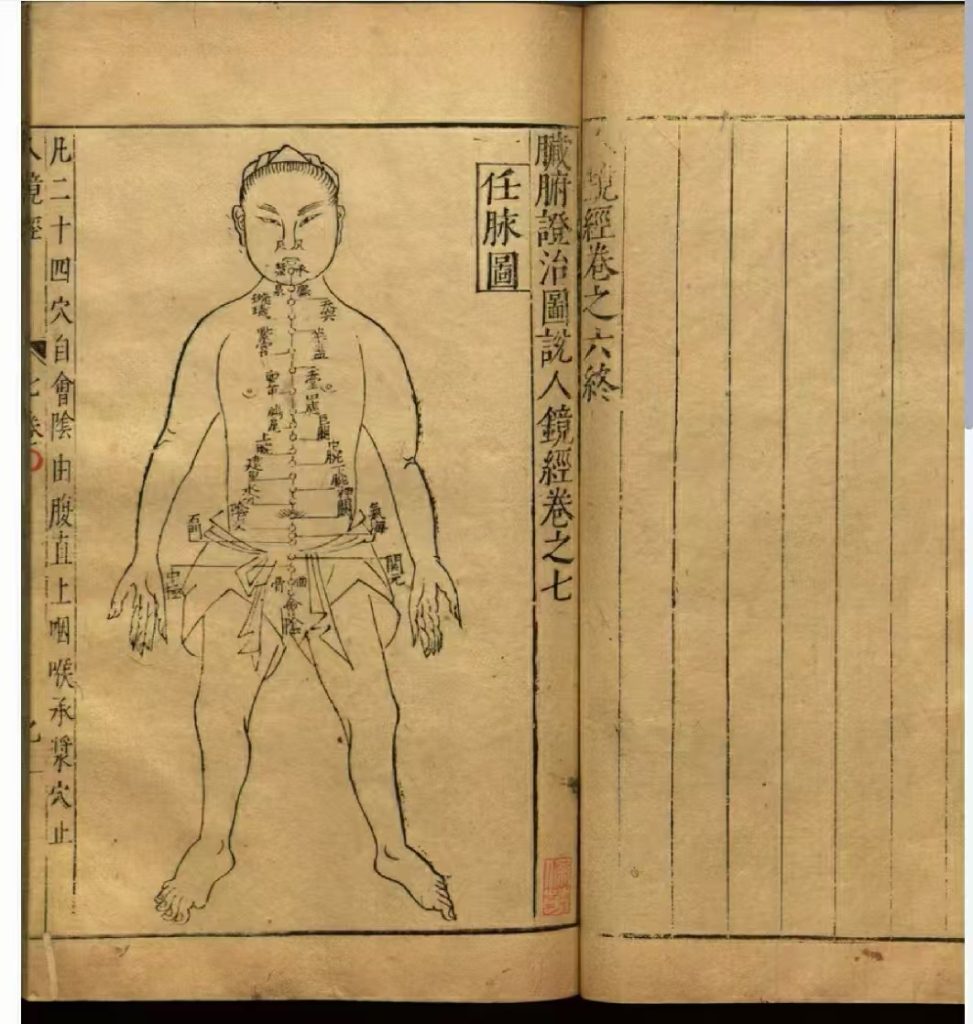 鏡經卷之六終
臟腑證治圖說人鏡經卷之七
任脉圖
天突
璇璣
華蓋
紫宮
玉堂
鳩尾
巨闕
上脘
中脘
建里
下脘
水分
神闕
陰交
氣海
石門
關元
中極
曲骨
會陰
凡二十四穴自會陰由腹直上咽喉承漿穴止
人鏡經
七卷